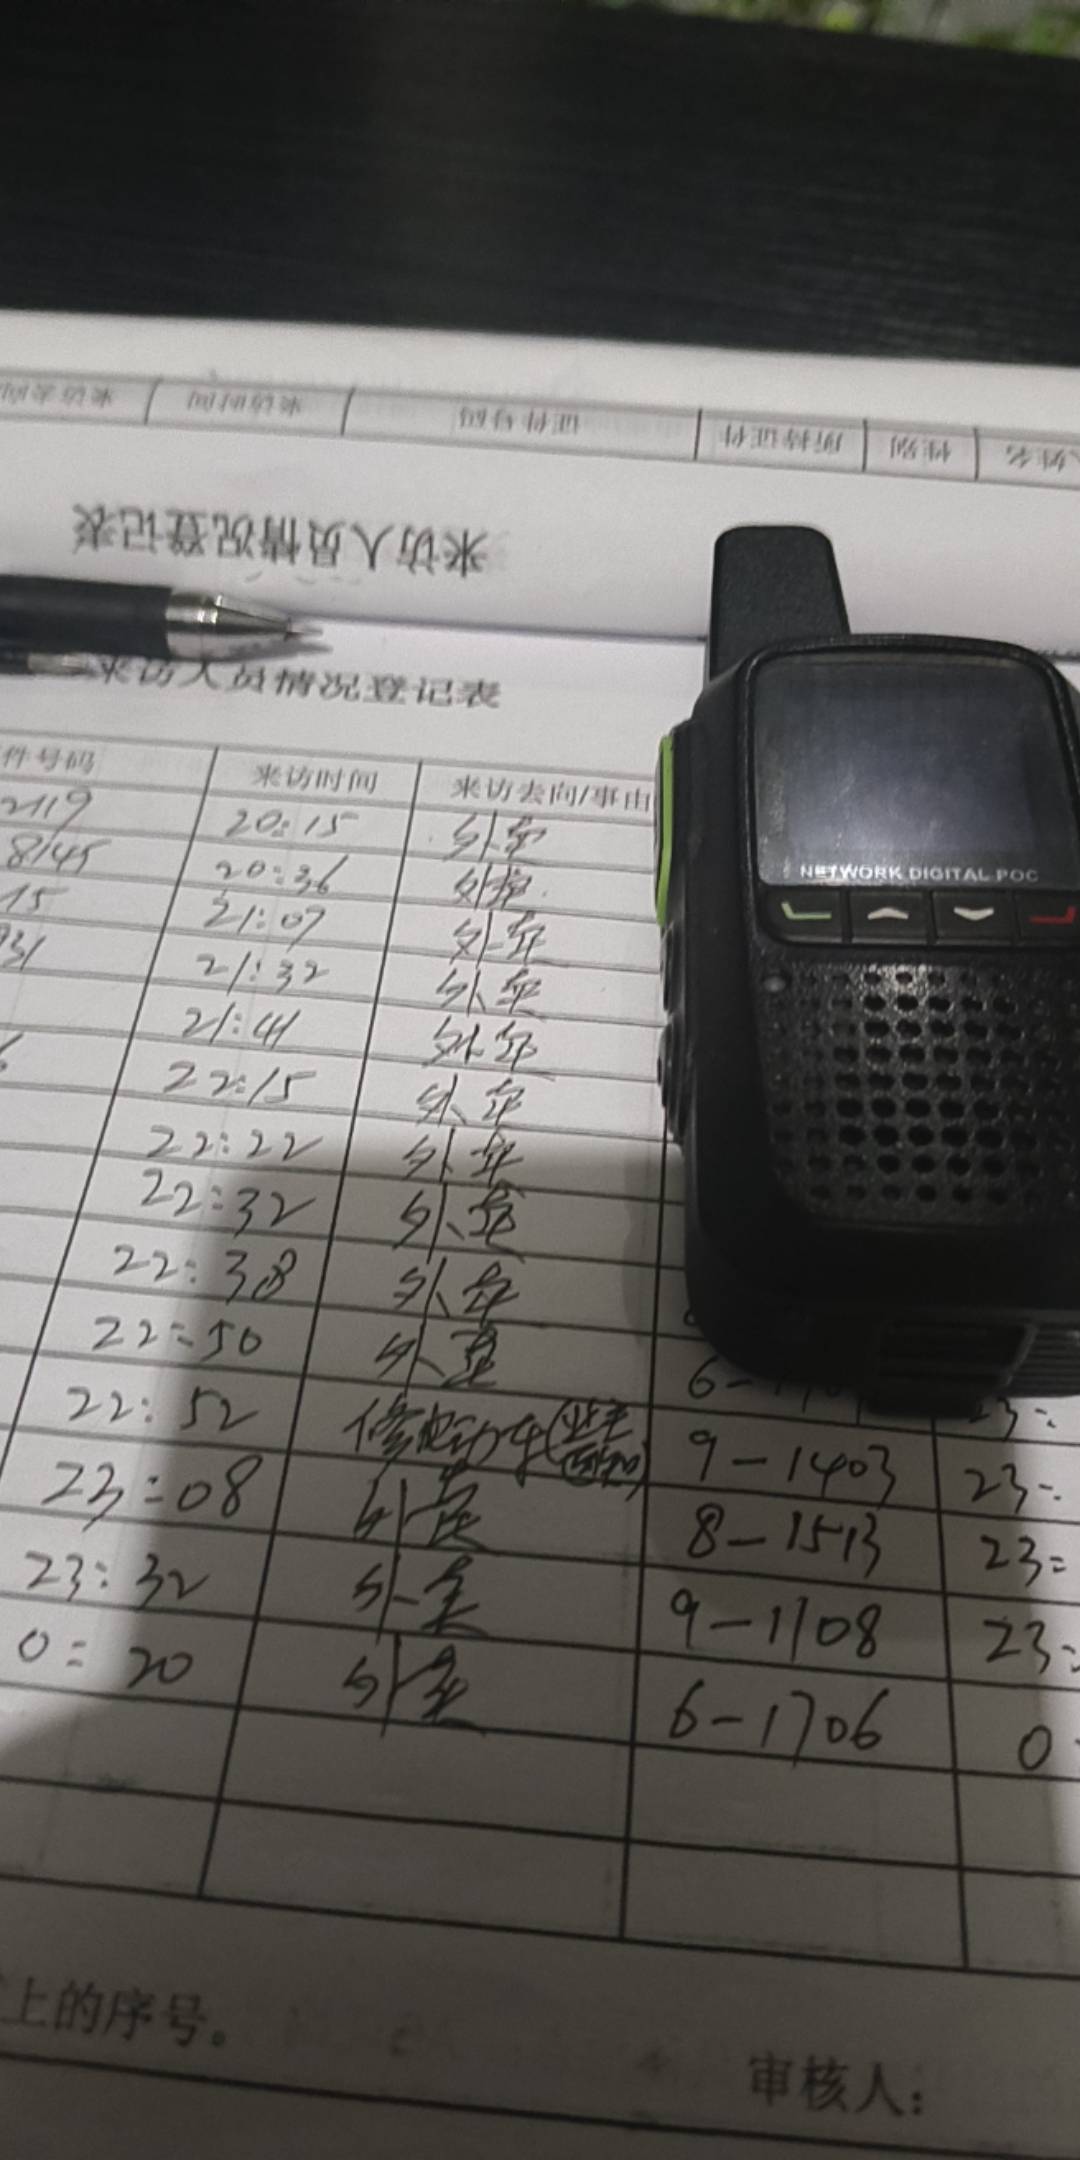 来访去向 来访时间 证件号码 所持证件 性别 姓名
来访人员情况登记表
来访人员情况登记表
件号码 来访时间 来访去向/事由
2119 20:15 外卖
8145 20:36 外卖
15 21:07 外卖
931 21:32 外卖
21:41 外卖
6 22:15 外卖
22:22 外卖
22:32 外卖
22:38 外卖
22:50 外卖 6-
22:52 修电动车 9-1403 23:
23:08 外卖 8-1513 23:
23:32 外卖 9-1108 23:
0:20 外卖 6-1706 0
上的序号。
审核人:
NETWORK DIGITAL POC